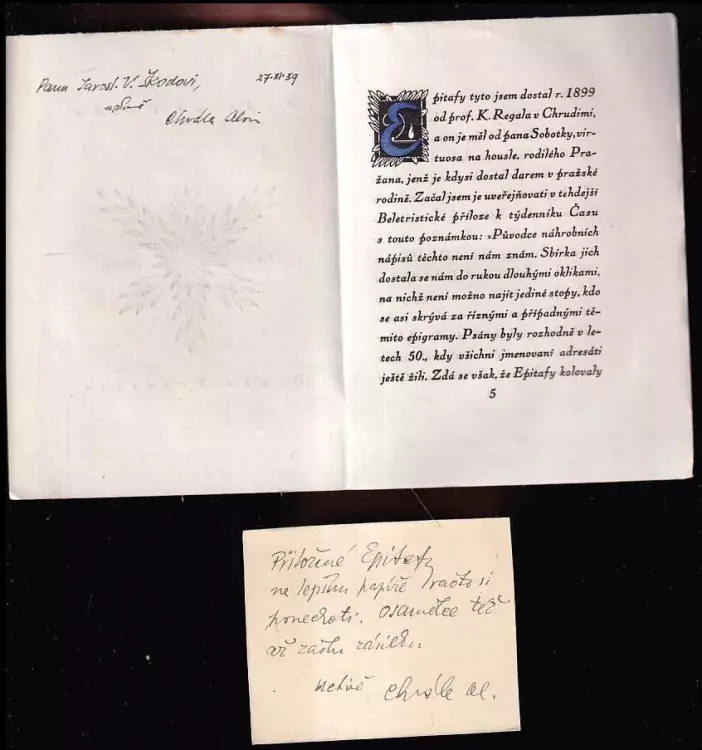 Panu Jarosl. V. Škodovi,
27·XI·39
upřímně
Chvála Alois
Epitafy tyto jsem dostal r. 1899
od prof. K. Regala v Chrudimi,
a on je měl od pana Sobotky, vir-
tuosa na housle, rodilého Pra-
žana, jenž je kdysi dostal darem v pražské
rodině. Začal jsem je uveřejňovati v tehdejší
Beletristické příloze k týdenníku Času
s touto poznámkou: »Původce náhrobních
nápisů těchto není nám znám. Sbírka jich
dostala se nám do rukou dlouhými oklikami,
na nichž není možno najít jediné stopy, kdo
se asi skrývá za říznými a případnými tě-
mito epigramy. Psány byly rozhodně v le-
tech 50., kdy všichni jmenovaní adresáti
ještě žili. Zdá se však, že Epitafy kolovaly
5
Přiložené Epitafy
na lepším papíře račte si
ponechati. Osamělce též
až zašlu zásilku
Chvála Al.